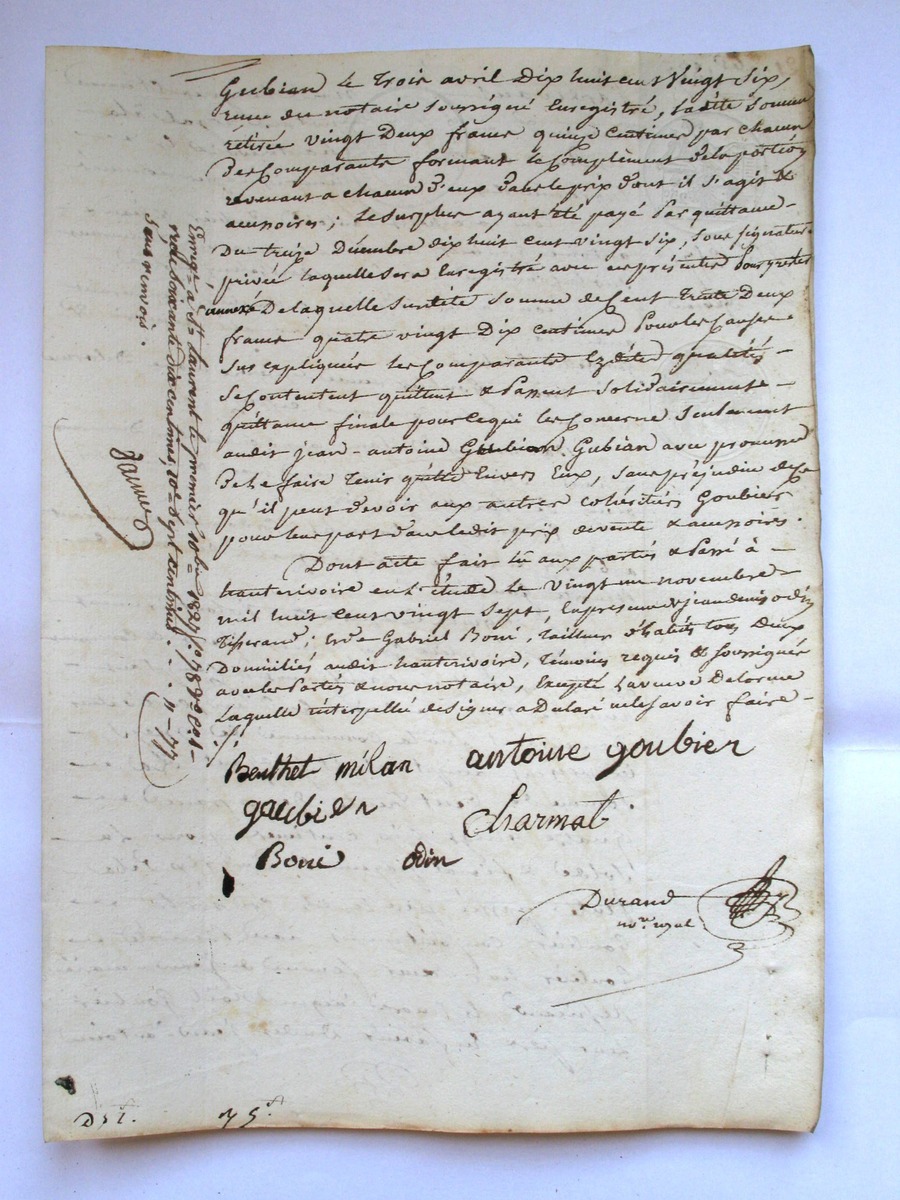 Gubian le trois avril Dix huit cent Vingt Six,
reçue du notaire Soussigné Enregistré, Ladite Somme
retirée vingt Deux francs quinze Centimes par chacun
Des Comparants formant le Complément de la portion
revenant a chacun d'eux dans le prix dont il s'agit &
accessoires; Le Surplus ayant été payé Par quittance
Du treize Décembre dix huit cent vingt Six, Sous signature
privée laquelle Sera Enregistré avec ces présentes Pour y rester
annexé De laquelle Susdite Somme de Cent trente Deux
francs quatre vingt Dix centimes Pour les Causes
Sus expliquées les Comparants Esdites qualités
Se Contentent quittent & Passent Solidairement
quittance finale pour ce qui les Concerne Seulement
audit jean-antoine Goubian Gubian avec promesse
De le faire Tenir quitte Envers Eux, Sans préjudice de ce
qu'il peut devoir aux autres cohéritiers Goubier
pour leur part dans ledit prix de vente & accessoires.
Dont acte fait lû aux parties & Passé à
hauterivoire en l'étude le Vingt un novembre
mil huit cent vingt Sept, En présence de jean denis odin
Tisserand, & de Gabriel Boni, Tailleur d'habits tous Deux
Domiciliés audit hauterivoire, Témoins requis & Soussignés
avec les Parties & nous notaire, Excepté La veuve Delorme
Laquelle interpellée de Signer a Déclaré ne le Savoir faire
Berthet milan antoine goubier
gaubien Charmat
Boni odin
Durand
nore royal
Enregé à St Laurent le premier 10bre 1827 fo 78 Vo Ce 1
reçu Soixante dix centimes, 10e Sept centimes . . . " - 77
Sans renvois.
Dst. 75 c